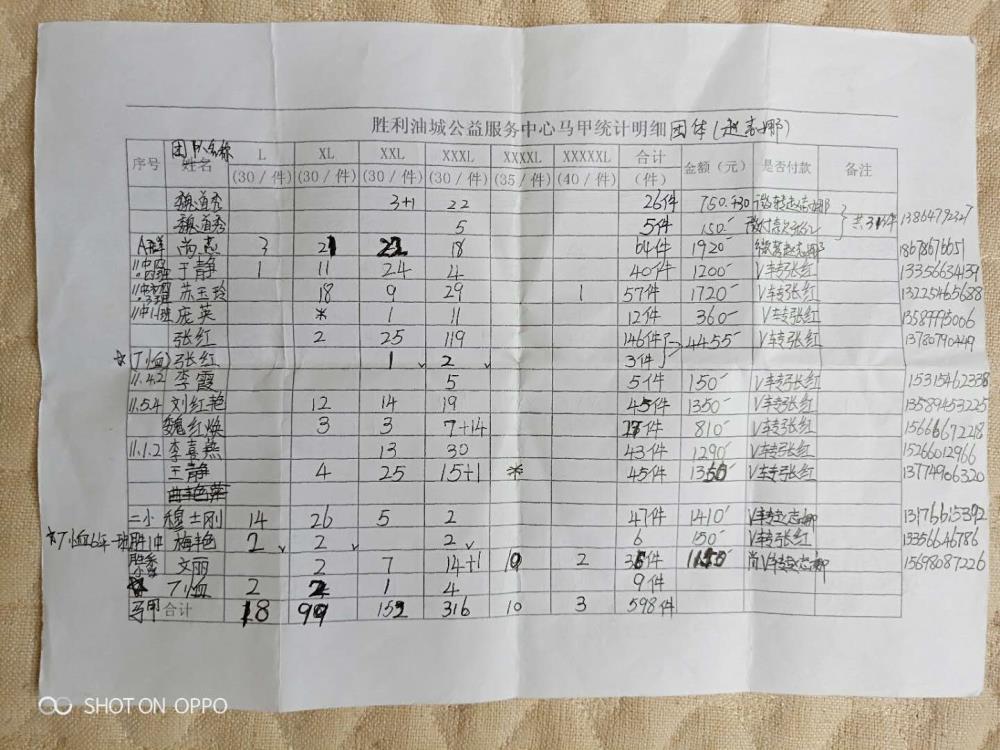 胜利油城公益服务中心马甲统计明细 团体(赵志娜)
序号 团队名称 姓名 L XL XXL XXXL XXXXL XXXXXL 合计 金额（元） 是否付款 备注
(30/件) (30/件) (30/件) (30/件) (35/件) (40/件) (件)
魏道秀 3+1 22 26件 750 +30
魏道秀 5 5件 150 共31件 13864792327
A群 尚志 3 21 22 18 64件 1920 18678676051
于静 1 11 24 4 40件 1200 V转张红 13356634139
苏玉玲 18 9 29 1 57件 1720 V转张红 13225465688
庞英 * 1 11 12件 360 V转张红 13589995006
张红 2 25 119 146件 4455 V转张红 13780790449
☆(丁小血) 张红 1 2 3件
11.4.2 李霞 5 5件 150 V转张红 15315462338
11.5.4 刘红艳 12 14 19 45件 1350 V转张红 13589453225
魏红焕 3 3 7+14 件 810 V转张红 1566667228
11.1.2 李喜燕 13 30 43件 1290 V转张红 15266012966
王静 4 25 15+1 * 45件 1350 V转张红 13774906320
二小 穆士刚 14 26 5 2 47件 1410 V转赵志娜 13176615392
胜中 梅艳 2 2 2 6 150 V转张红 13356646786
文丽 2 7 14+1 10 2 件 尚V转赵志娜 15698087226
丁小血 2 2 1 4 9件
马甲 合计 18 99 152 316 10 3 598件
SHOT ON OPPO